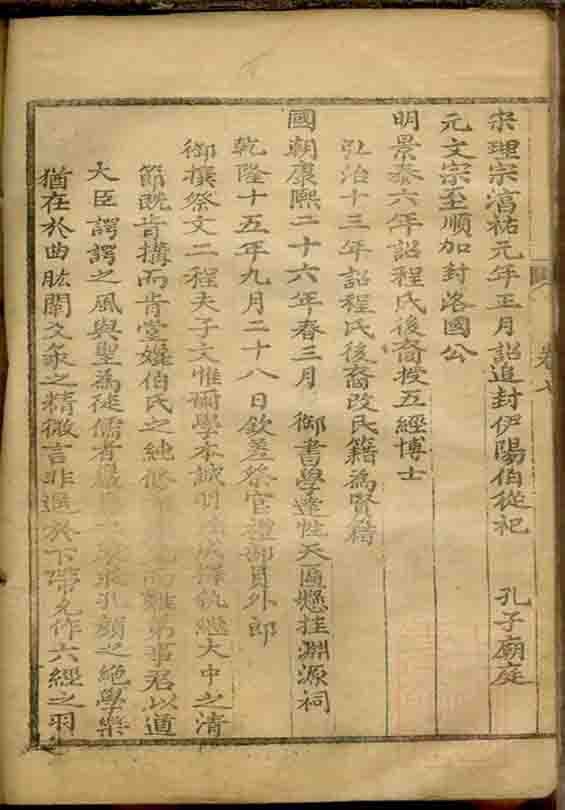 卷七
宋理宗淳祐元年正月詔追封伊陽伯從祀 孔子廟庭
元文宗至順加封洛國公
明景泰六年詔程氏後裔授五經博士
弘治十三年詔程氏後裔改民籍為賢籍
國朝康熙二十六年春三月 御書學達性天匾懸挂淵源祠
乾隆十五年九月二十八日欽差祭官禮部員外郎
御撰祭文二程夫子文惟爾學本誠明 執繼大中之清
節既肯搆而肯堂媲伯氏之純修 而難弟事君以道
大臣諤諤之風與聖為徒儒者 孔顏之絶學樂
猶在於曲肱闡爻彖之精微言非遜於下帶允作六經之羽